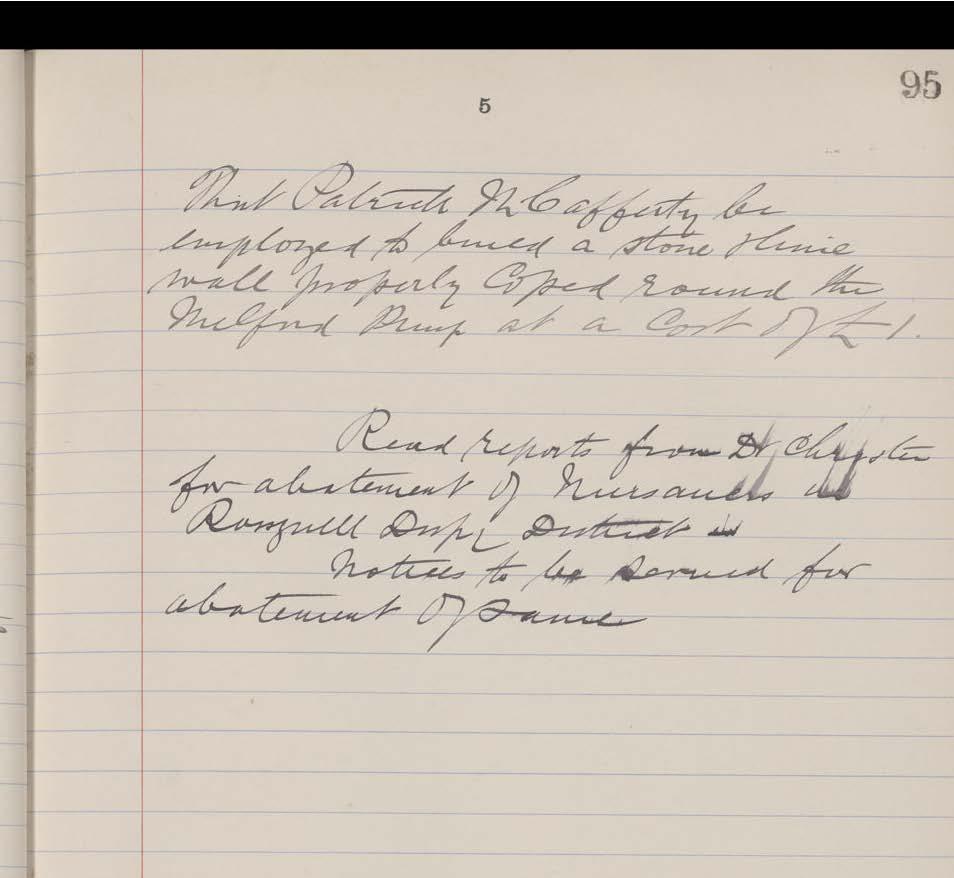 95
5
That Patrick McCafferty be
employed to build a stone & lime
wall properly Coped round the
Milford Pump at a Cost of £1.
Read reports from Dr
for abatement of Nuisances in
Rosguill Dispy District
Notices to be served for
abatement of Same